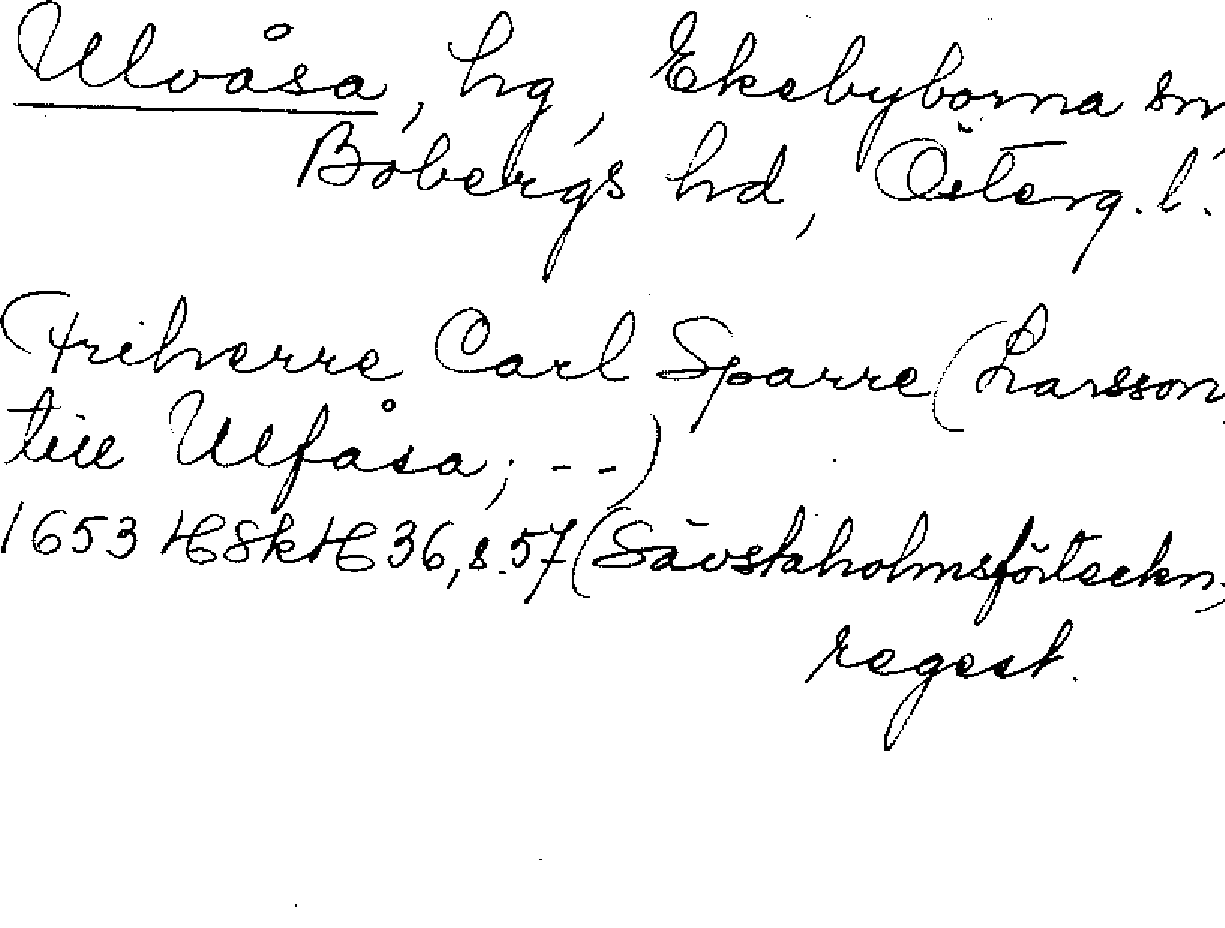 Ulvåsa, hg, Ekebyborna sn
Bobergs hd, Österg. l.
Friherre Carl Sparre (Larsson,
till Ulfåsa; - -)
1653 HSkH 36, s. 57 (Sävstaholmsförteckn;
regest.